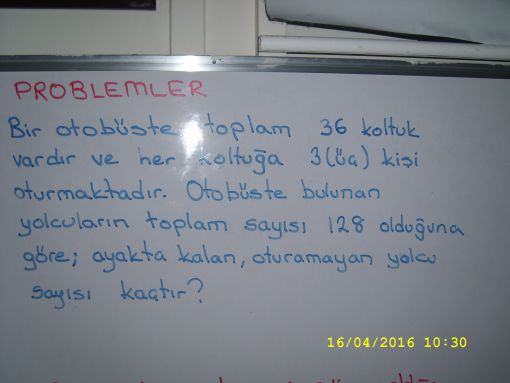 PROBLEMLER
Bir otobüste toplam 36 koltuk
vardır ve her koltuğa 3(üç) kişi
oturmaktadır. Otobüste bulunan
yolcuların toplam sayısı 128 olduğuna
göre; ayakta kalan, oturamayan yolcu
sayısı kaçtır?
16/04/2016 10:30